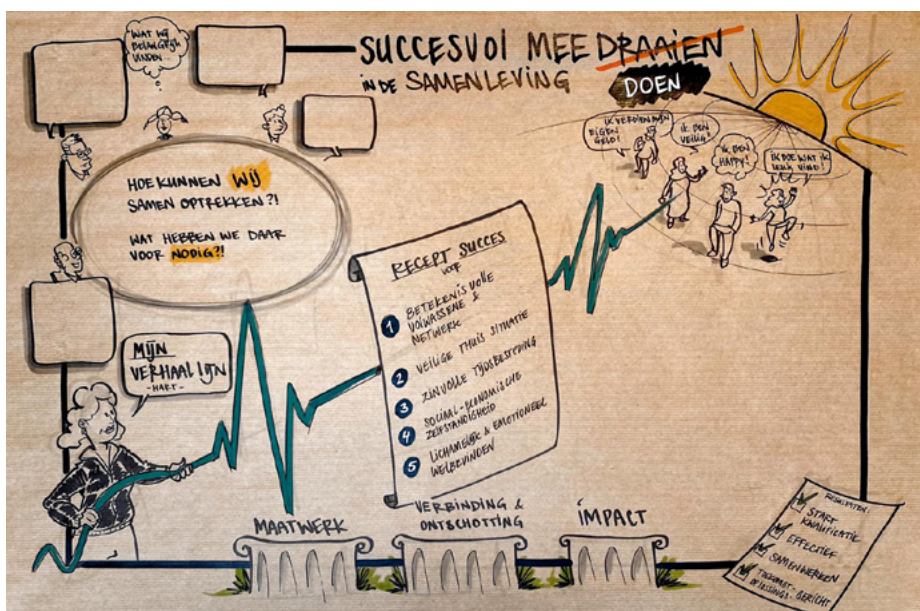 WAT WIJ
BELANGRIJK
VINDEN...
SUCCESVOL MEEDRAAIEN
IN DE SAMENLEVING
DOEN
IK VERDIEN MIJN
EIGEN
GELD!
IK BEN
VEILIG!
IK BEN
HAPPY!
IK DOE WAT IK
LEUK VIND!
HOE KUNNEN WIJ
SAMEN OPTREKKEN?!
WAT HEBBEN WE DAAR
VOOR NODIG?!
MIJN
VERHAALLIJN
-HART-
RECEPT SUCCES
VOOR
1 BETEKENISVOLLE
VOLWASSENE &
NETWERK
2 VEILIGE THUIS SITUATIE
3 ZINVOLLE TIJDSBESTEDING
4 SOCIAAL-ECONOMISCHE
ZELFSTANDIGHEID
5 LICHAMELIJK & EMOTIONEEL
WELBEVINDEN
MAATWERK
VERBINDING &
ONTSCHOTTING
IMPACT
RESULTATEN:
START
KWALIFICATIE
EFFECTIEF
SAMENWERKEN
TOEKOMST-
OPLOSSINGS-GERICHT